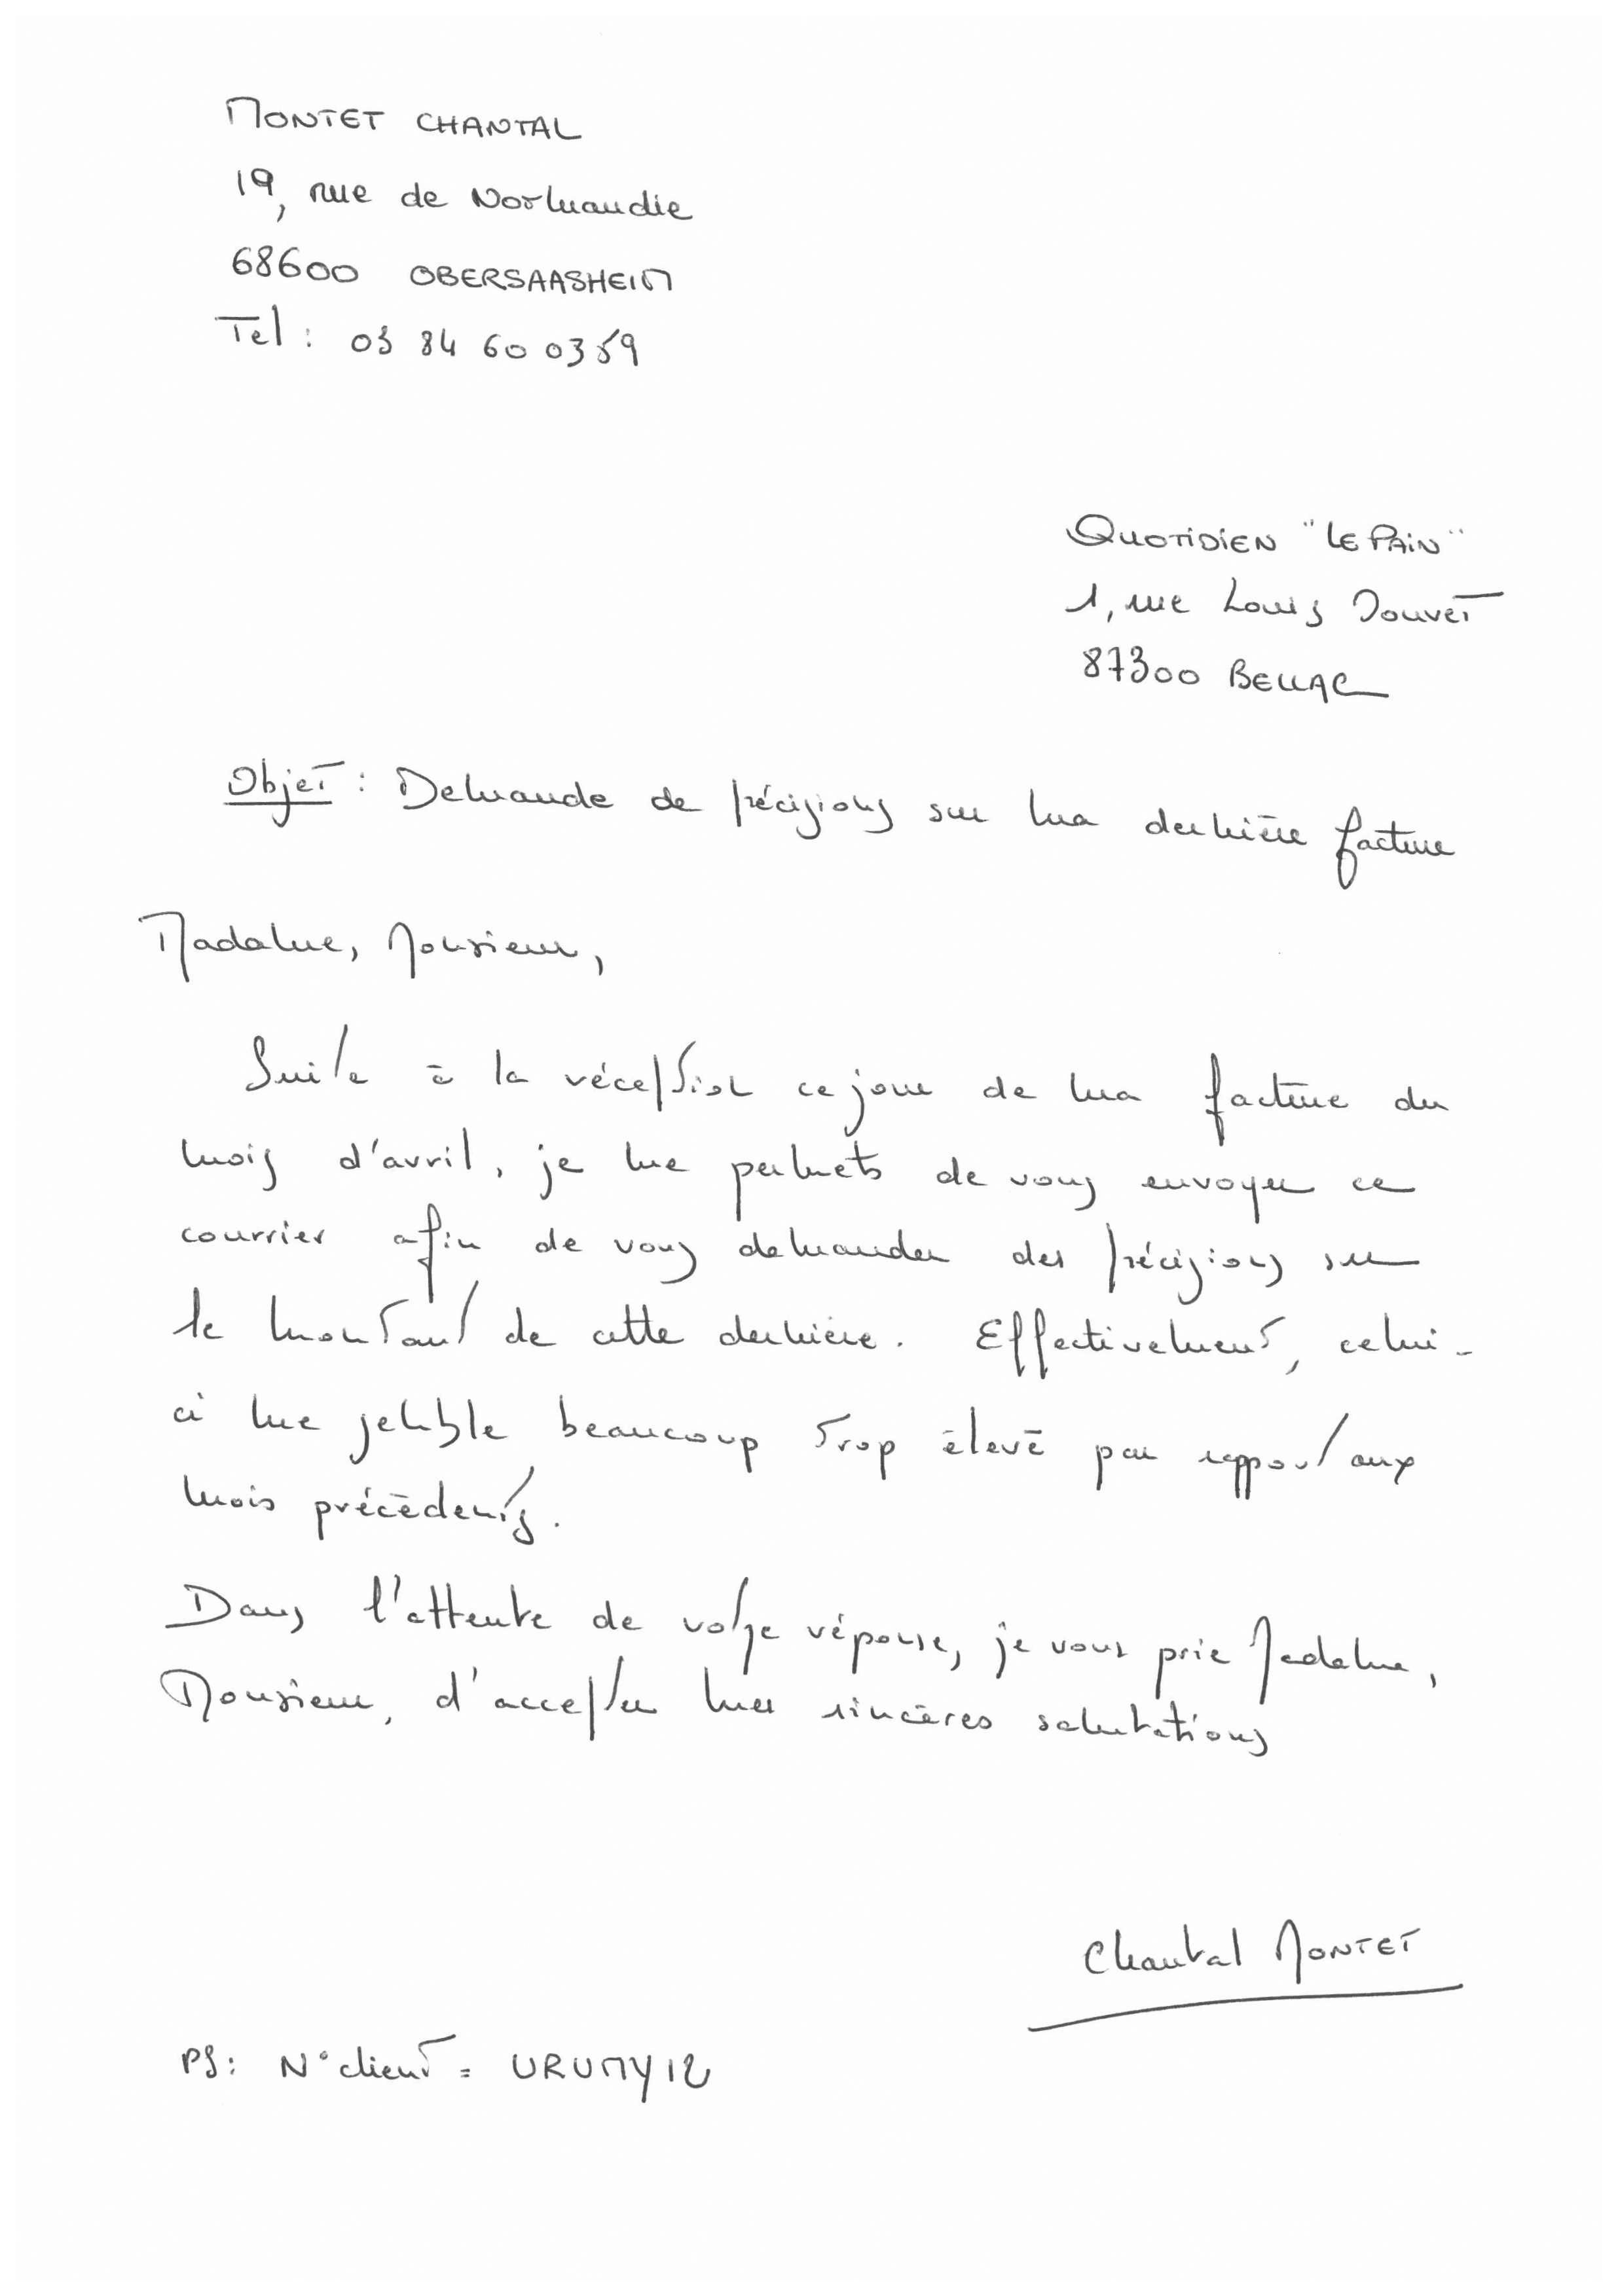 MONTET CHANTAL
19, rue de Normandie
68600 OBERSAASHEIM
Tel : 03 84 60 03 59
QUOTIDIEN "LE PAIN"
1, rue Louis Jouvet
87300 BELLAC
Objet : Demande de précisions sur ma dernière facture
Madame, Monsieur,
Suite à la réception ce jour de ma facture du
mois d'avril, je me permets de vous envoyer ce
courrier afin de vous demander des précisions sur
le montant de cette dernière. Effectivement, celui-
ci me semble beaucoup trop élevé par rapport aux
mois précédents.
Dans l'attente de votre réponse, je vous prie Madame,
Monsieur, d'accepter mes sincères salutations
Chantal MONTET
PS : N° client = URUMY12